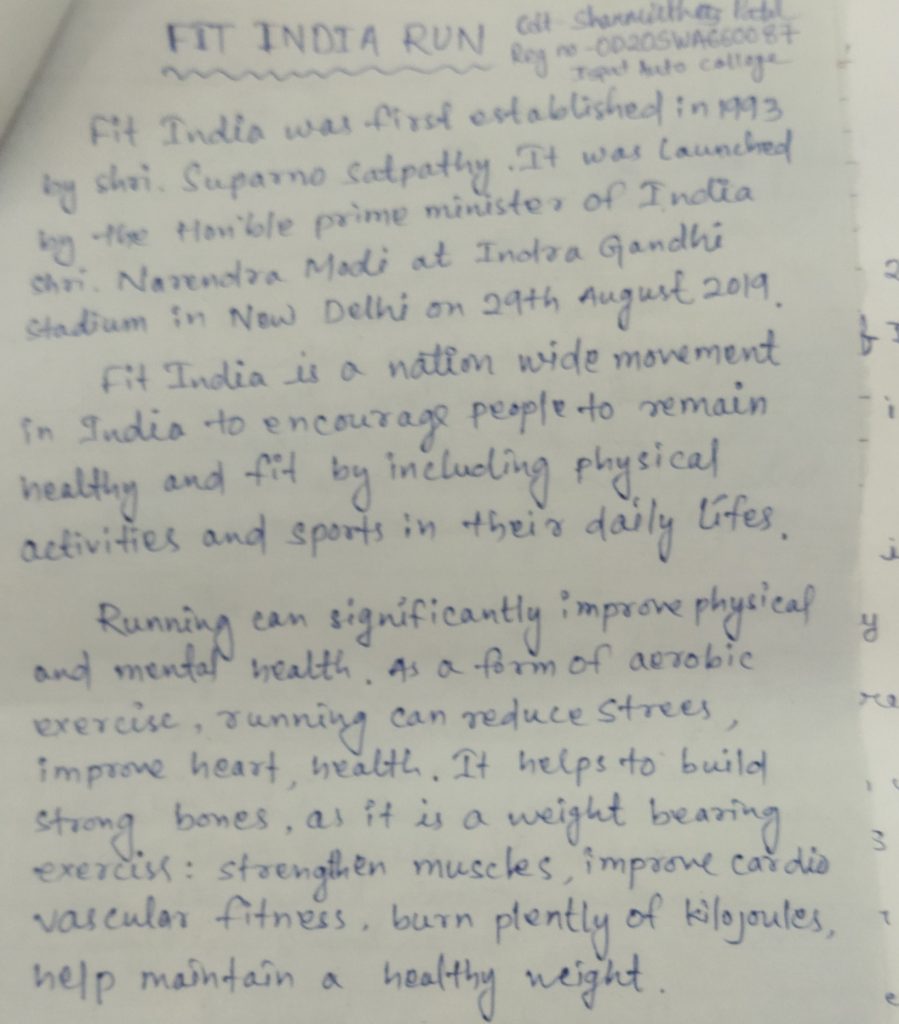 FIT INDIA RUN
Reg no - OD20SWA660087
Auto college
Fit India was first established in 1993
by shri. Suparno Satpathy. It was launched
by the Hon'ble prime minister of India
shri. Narendra Modi at Indra Gandhi
stadium in New Delhi on 29th August 2019.
Fit India is a nation wide movement
in India to encourage people to remain
healthy and fit by including physical
activities and sports in their daily lifes.
Running can significantly improve physical
and mental health. As a form of aerobic
exercise, running can reduce strees,
improve heart, health. It helps to build
strong bones, as it is a weight bearing
exerciss: strengthen muscles, improve cardio
vascular fitness, burn plently of kilojoules,
help maintain a healthy weight.